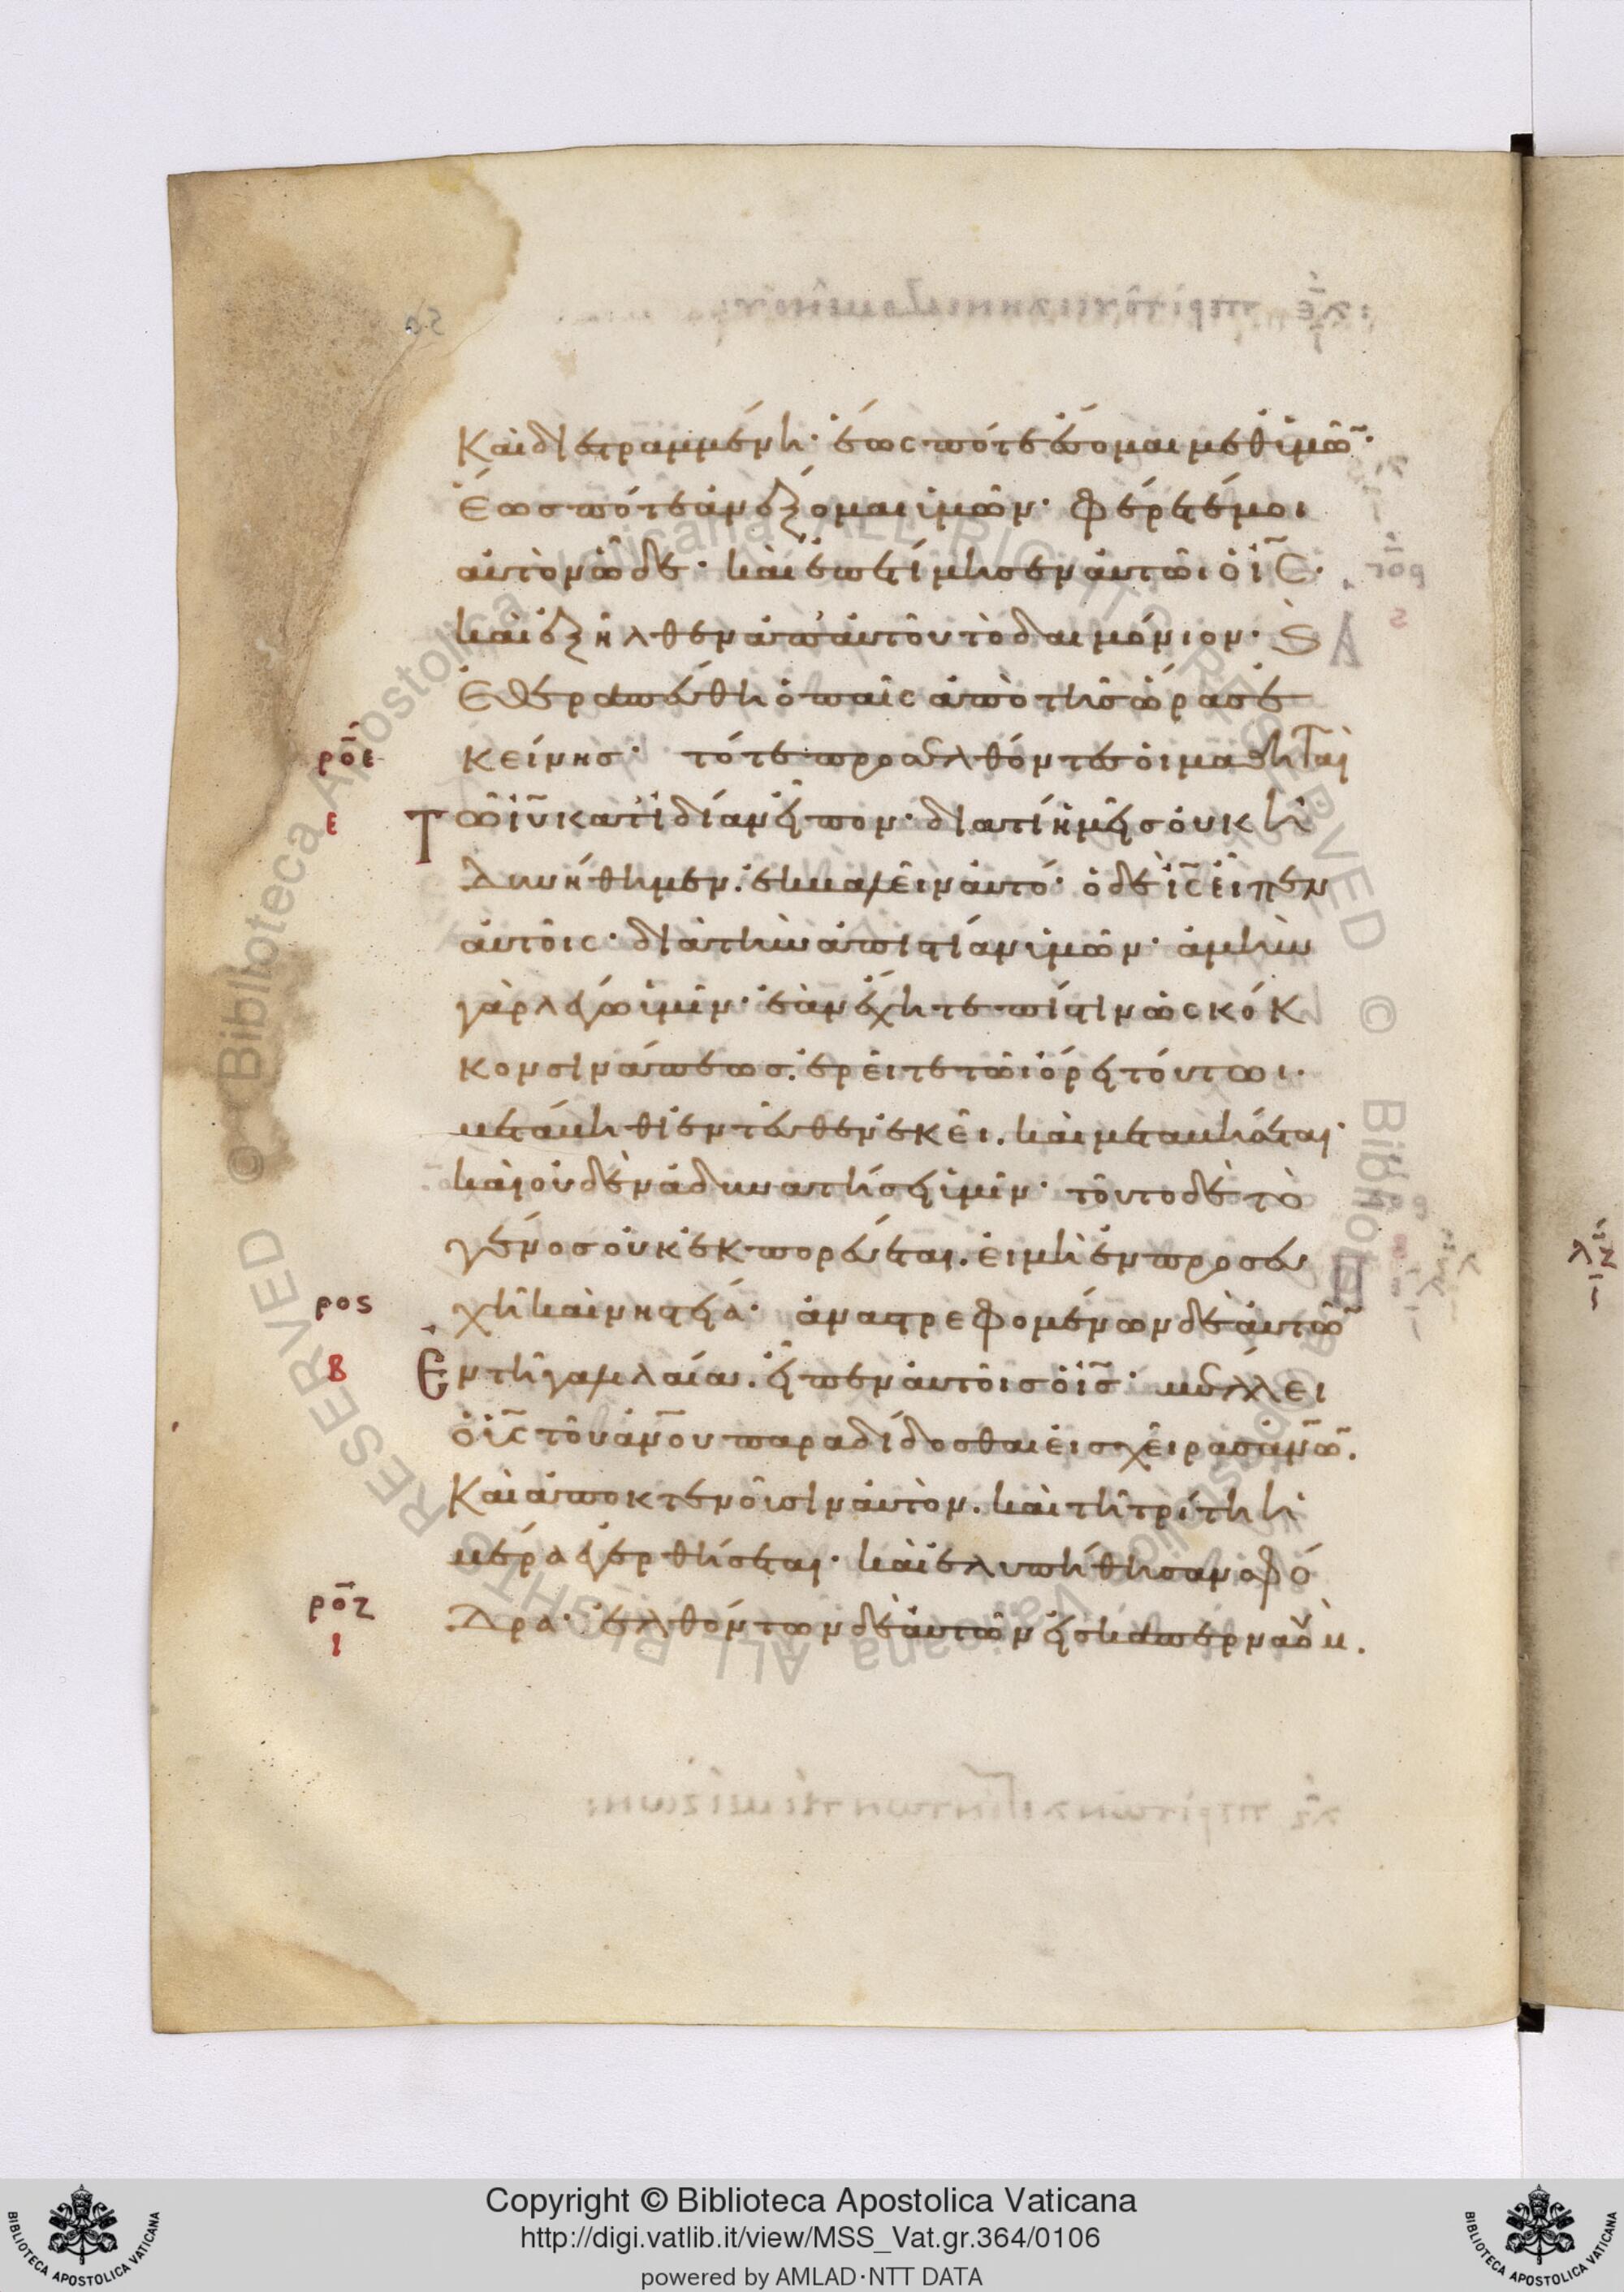 καὶ διεστραμμένη· ἕως πότε ἔσομαι μεθ' ὑμῶ̄·
ἕως πότε ἀνέξομαι ὑμῶν· φέρετέ μοι
αὐτὸν ὧδε· καὶ ἐπετίμησεν αὐτῶι ὁ ι̅ς̅·
καὶ ἐξῆλθεν ἀπ' αὐτοῦ τὸ δαιμόνιον· ϗ
ἐθεραπεύθη ὁ παῖς ἀπὸ τῆς ὥρας ἐ
ρο̅ε κείνης· τότε προσελθόντες οἱ μαθηταὶ
ε τῶ ι̅υ̅ κατ' ἰδίαν εἶπον· διατί ἡμεῖς οὐκ ἠ
δυνήθημεν ἐκβαλεῖν αὐτό· ὁ δὲ ι̅ς̅ εἶπεν
αὐτοῖς· διὰ τὴν ἀπιστίαν ὑμῶν· ἀμὴν
γὰρ λέγω ὑμῖν· ἐὰν ἔχητε πίστιν ὡς κόκ
κον σινάπεως. ἐρεῖτε τῶι ὄρει τούτωι.
μετάβηθι ἐντεῦθεν ἐκεῖ. καὶ μεταβήσεται·
καὶ οὐδὲν ἀδυνατήσει ὑμῖν· τοῦτο δὲ τὸ
γένος οὐκ ἐκπορεύεται. εἰ μὴ ἐν προσευ
ρος χῆ καὶ νηστεία· ἀναστρεφομένων δὲ αὐτῶ̄
β ἐν τῆ γαλιλαία. εἶπεν αὐτοῖς ὁ ι̅ς̅· μέλλει
ὁ υ̅ς̅ τοῦ ἀν̅ου παραδίδοσθαι εἰς χεῖρας ἀν̅ω̅.
καὶ ἀποκτενοῦσιν αὐτὸν. καὶ τῆ τρίτη ἡ
μέρα ἐγερθήσεται· καὶ ἐλυπήθησαν σφό
ρο̅ζ δρα· ἐλθόντων δὲ αὐτῶν εἰς καπερναοὺμ.
ι
Copyright © Biblioteca Apostolica Vaticana
http://digi.vatlib.it/view/MSS_Vat.gr.364/0106
powered by AMLAD·NTT DATA